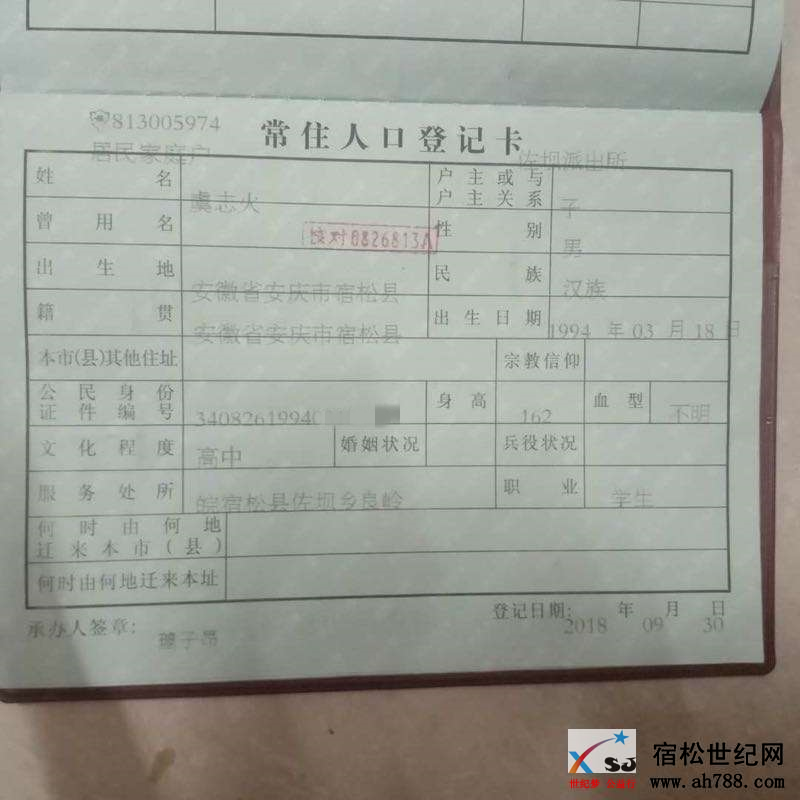 813005974
常住人口登记卡
居民家庭户 佐坝派出所
姓名 虞志火 户主或与户主关系 子
曾用名 性别 男
校对0826813A
出生地 安徽省安庆市宿松县 民族 汉族
籍贯 安徽省安庆市宿松县 出生日期 1994年03月18日
本市(县)其他住址 宗教信仰
公民身份证件编号 3408261994 身高 162 血型 不明
文化程度 高中 婚姻状况 兵役状况
服务处所 皖宿松县佐坝乡良岭 职业 学生
何时由何地迁来本市(县)
何时由何地迁来本址
登记日期: 2018年09月30日
承办人签章: 子昂
XSJ
宿松世纪网
www.ah788.com